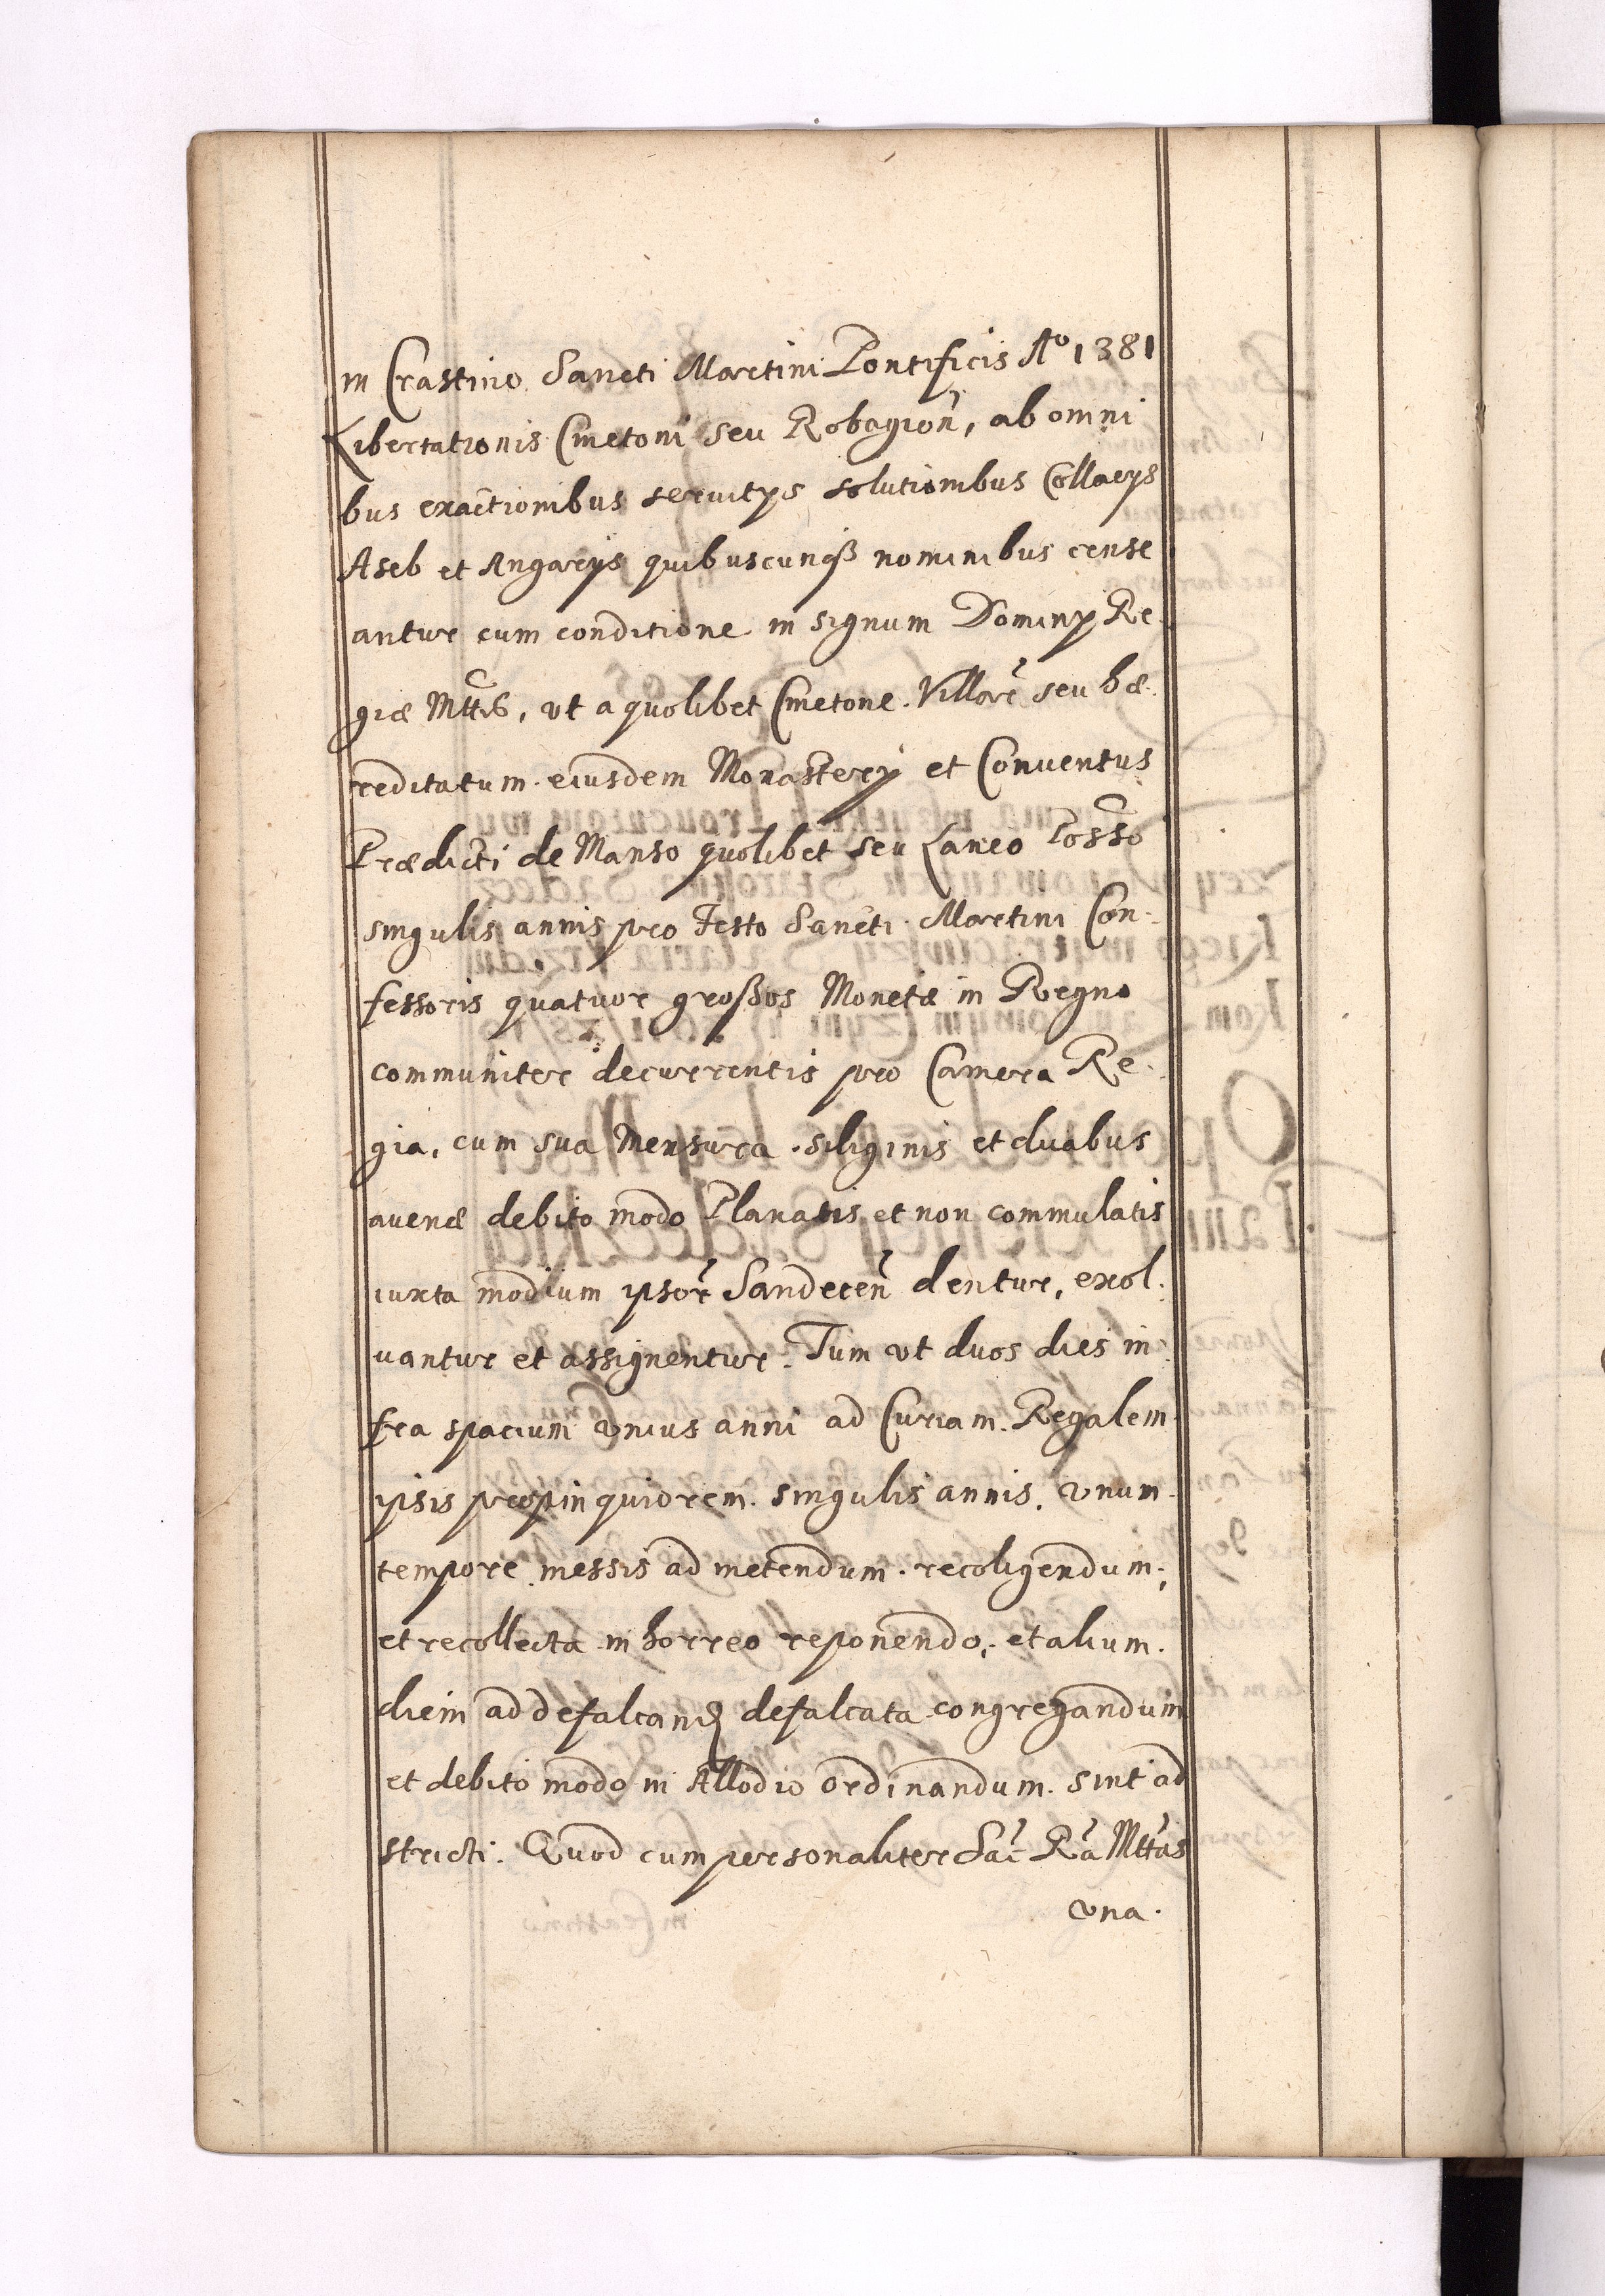 in Crastino Sancti Martini Pontificis Aº 1381
Libertationis Cmetoni seu Robagion̄, ab omni
bus exactionibus seruitys solutionibus Collacys
Aseb et Angarys quibuscunqß nominibus cense
antur cum conditione in signum Dominy Re
giæ Mttis, vt a quolibet Cmetone. Villar̃ seu hæ.
reditatum. eiusdem Monastery et Conuentus
Prædicti de Manso quolibet seu Laneo Posso
singulis annis pro Festo Sancti. Martini Con
fessoris quatuor großos Monetæ in Regno
communiter decurrentis pro Camera Re.
gia, cum sua Mensura. siliginis et duabus
auenæ debito modo Planatis et non commulatis
iuxta modium ipsor̃ Sandecen̄ dentur, exol.
uantur et assignentur. Tum vt duos dies in
fra spacium vnius anni ad Curiam. Regalem
ipsis propinquiorem. singulis annis. vnum
tempore messis ad metendum. recoligendum;
et recollecta in horreo reponendo; et alium.
diem ad defalcand defalcata congregandum
et debito modo in Allodio ordinandum. sint ad
stricti. Quod cum personaliter Sac̃ Rã Mttas
vna.